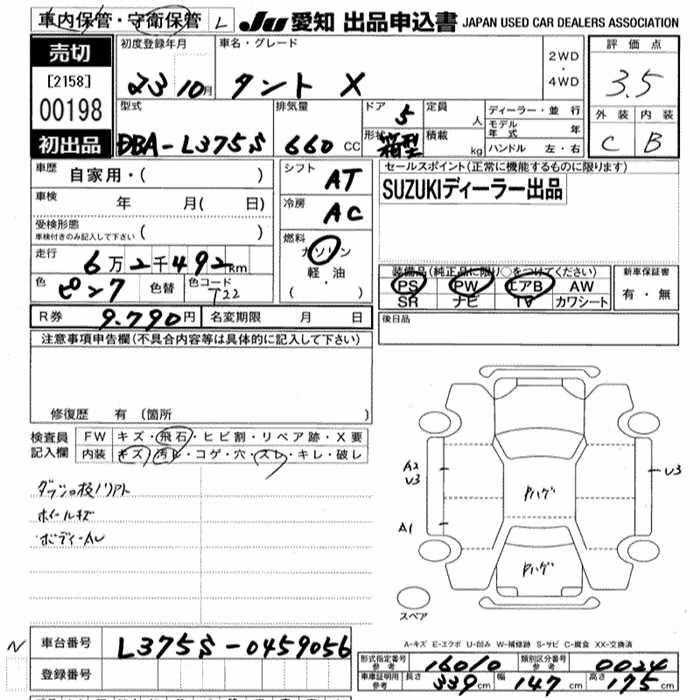 車内保管・守衛保管 L JU 愛知 出品申込書 JAPAN USED CAR DEALERS ASSOCIATION
売切
[2158]
00198
初出品
初度登録年月 23 10月
車名・グレード タント X
2WD
・
4WD
評価点
3.5
外装 内装
C B
型式 DBA-L375S
排気量 660 CC
ドア 5
形状 箱型
定員 人
積載 kg
ディーラー・並行
モデル年式 年
ハンドル 左・右
車歴 自家用・( )
車検 年 月( 日)
受検形態
車検付きのみ記入して下さい ( )
走行 6万2千492km
色 ピンク 色替 色コード T22
シフト AT
冷房 AC
燃料
ガソリン
軽・油
( )
セールスポイント(正常に機能するものに限ります)
SUZUKIディーラー出品
装備品(純正品に限り○をつけてください)
PS PW エアB AW
SR ナビ TV カワシート
新車保証書
有・無
R券 9.790円 名変期限 月 日
後日品
注意事項申告欄(不具合内容等は具体的に記入して下さい)
修復歴 有(箇所 )
検査員
記入欄
FW キズ・飛石・ヒビ割・リペア跡・X要
内装 キズ・汚レ・コゲ・穴・スレ・キレ・破レ
ホイールキズ
A2
V3
V3
A1
Pハゲ
Pハゲ
スペア
A-キズ E-エクボ U-凹み W-補修跡 S-サビ C-腐食 XX-交換済
N
車台番号 L375S-0459056
登録番号
形式指定番号
参考 16010
類別区分番号
参考 0024
車庫証明用
参考
長さ 339cm 幅 147cm 高さ 175cm